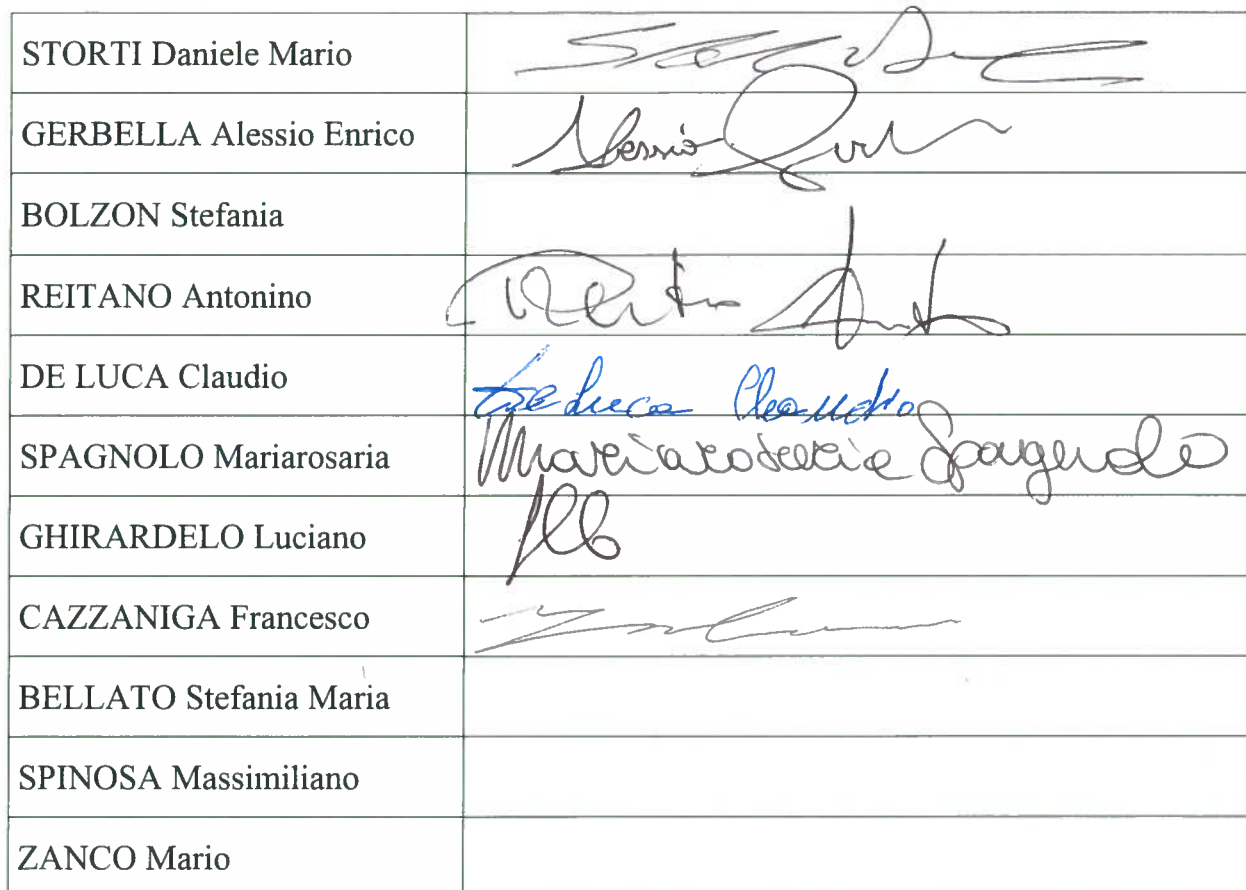 STORTI Daniele Mario
GERBELLA Alessio Enrico Alessio
BOLZON Stefania
REITANO Antonino
DE LUCA Claudio De Luca Claudio
SPAGNOLO Mariarosaria Mariarosaria Spagnolo
GHIRARDELO Luciano
CAZZANIGA Francesco
BELLATO Stefania Maria
SPINOSA Massimiliano
ZANCO Mario